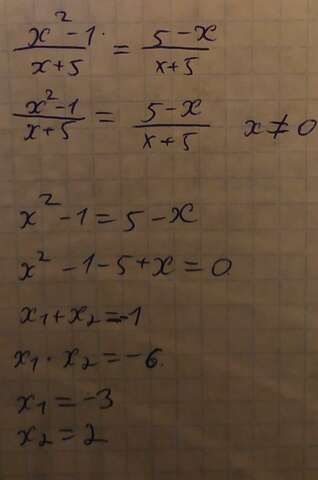 x² - 1 / x + 5 = 5 - x / x + 5
x² - 1 / x + 5 = 5 - x / x + 5 x ≠ 0
x² - 1 = 5 - x
x² - 1 - 5 + x = 0
x₁ + x₂ = -1
x₁ · x₂ = -6
x₁ = -3
x₂ = 2